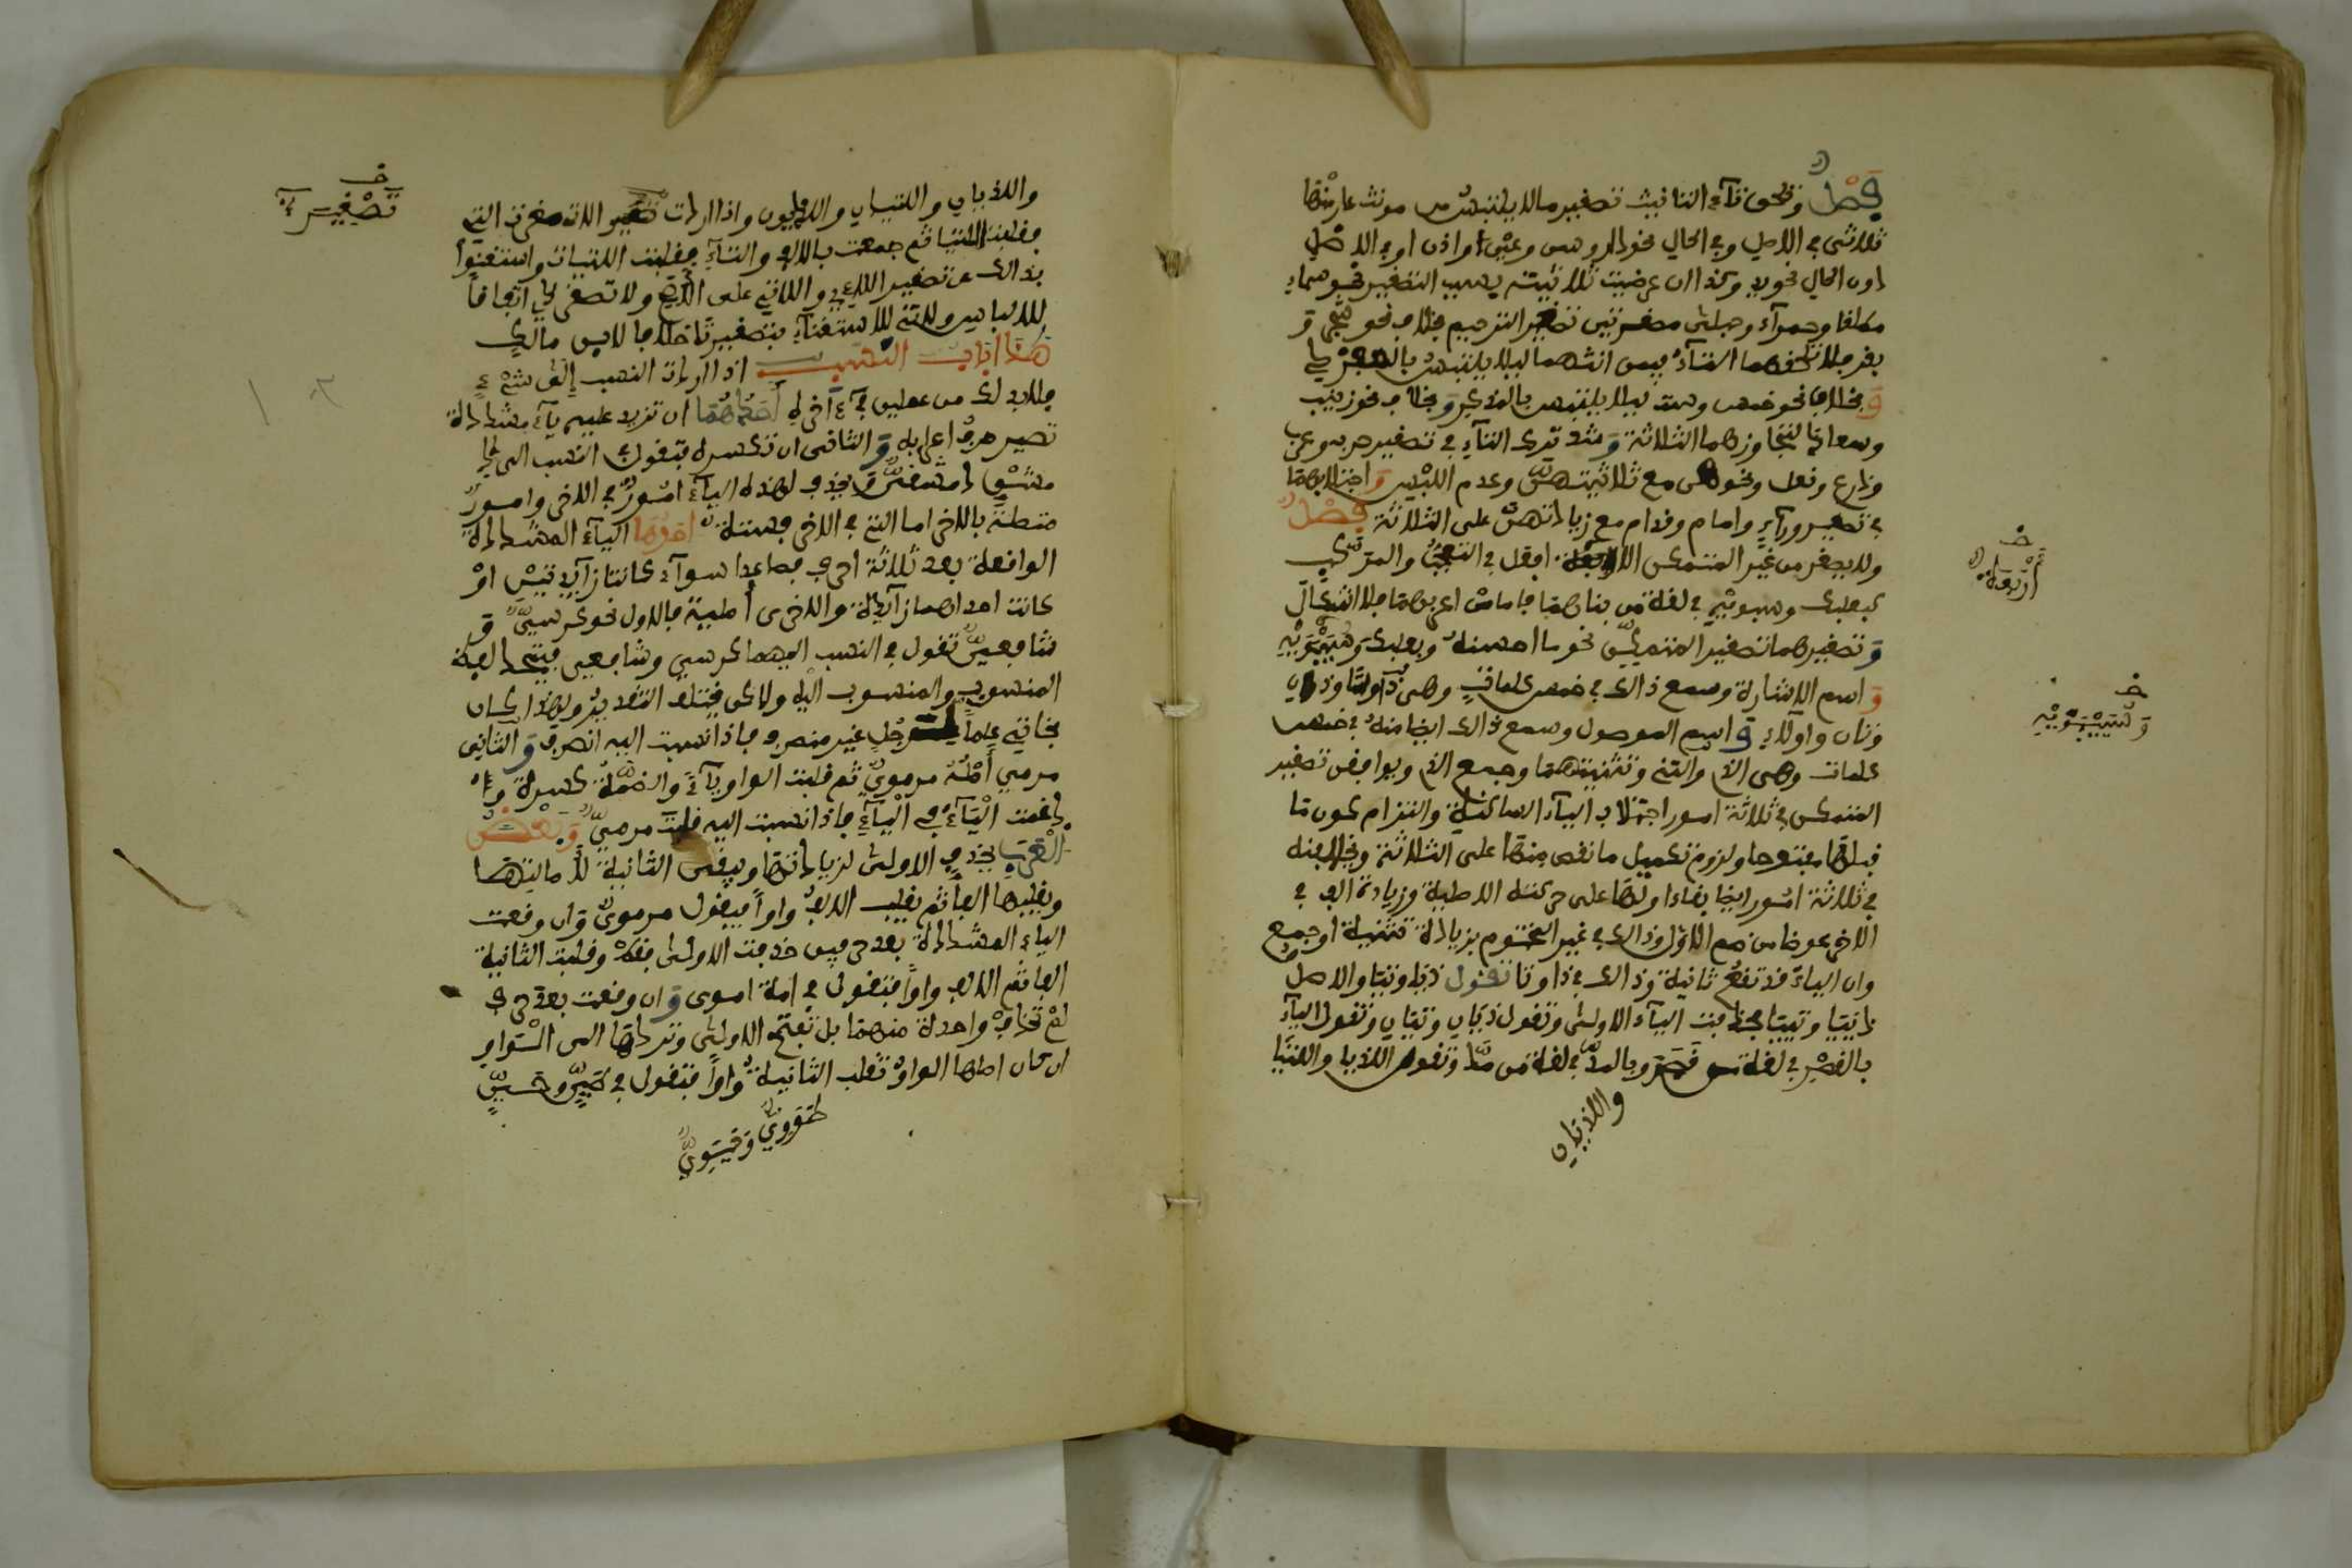 فصل وتلحق تاء التانيث تصغير ما لا يلتبس من مونث عار منها
ثلاثي في الاصل وفي الحال نحو دار وسن وعين واذن او في الاصل
دون الحال نحو يد وكذا ان عرضت ثلاثيته بسبب التصغير نحو سماء
مطلقا وحمراء وحبلى مصغرتين تصغير الترخيم بخلاف نحو شجر و
بقر فلا تلحقهما التاء فيمن انثهما ليلا يلتبس بالمفرد
و بخلاف نحو خمس وست ليلا يلتبس بالمذكر و بخلاف نحو زينب
وسعاد لتجاوزهما الثلاثة وشذ ترك التاء في تصغير حرب وعرب
ودرع ونعل ونحوهن مع ثلاثيتهن وعدم اللبس و اجتلابها
في تصغير وراء وامام وقدام مع زيادتهن على الثلاثة فصل
ولا يصغر من غير المتمكن الا اربعة افعل في التعجب والمركب
كبعلبك وسيبويه في لغة من بناهما فاما من اعربهما فلا اشكال
و تصغيرهما تصغير المتمكن نحو ما احيسنه وبعيلبك وسييبويه
و اسم الاشارة وسمع ذالك في خمس كلمات وهي ذا وتا وذان
وتان واولاء و اسم الموصول وسمع ذالك ايضا منه في خمس
كلمات وهي الذي والتي وتثنيتهما وجمع الذي ويوافقن تصغير
المتمكن في ثلاثة امور اجتلاب الياء الساكنة والتزام كون ما
قبلها مفتوحا ولزوم تكميل ما نقص منها على الثلاثة ويخالفنه
في ثلاثة امور ايضا بقاء اولها على حركته الاصلية وزيادة الف في
الاخر عوضا من ضم الاول وذالك في غير المختوم بزيادة تثنية او جمع
وان الياء قد تقع ثانية وذالك في ذا وتا تقول ذيا وتيا والاصل
ذييا وتييا فحذفت الياء الاولى وتقول ذيان وتيان وتقول اليا
بالقصر في لغة من قصر وبالمد في لغة من مد وتقول اللذيا واللتيا
واللذيان
خ
أربعة
خ
وسييبويه
واللذيان واللتيان واللذيون واذا اردت تصغير اللاتي صغرت التي
فقلت اللتيا ثم جمعت بالالف والتاء فقلت اللتيات واستغنوا
بذالك عن تصغير اللاءي واللاتي على الاصح ولا تصغر ذي اتفاقا
للالباس ولا تي للاستغناء بتصغير تا خلافا لابن مالك
هذا باب النسب اذا اردت النسب الى شيء
فلا بد لك من عملين في ءاخره أحدهما ان تزيد عليه ياء مشددة
تصير حرف اعرابه و الثاني ان تكسره فتقول في النسب الى
دمشق دمشقي و يحذف لهذه الياء امور في الاخر وامور
متصلة بالاخر اما التي في الاخر فستة أحدها الياء المشددة
الواقعة بعد ثلاثة احرف فصاعدا سواء كانتا زايدتين او
كانت احداهما زايدة والاخرى أصلية فالاول نحو كرسي و
شافعي تقول في النسب اليهما كرسي وشافعي فيتحد لفظ
المنسوب والمنسوب اليه ولاكن يختلف التقدير ولهذا كان
بخاتي علما لرجل غير منصرف فاذا نسبت اليه انصرف و الثاني
مرمي أصله مرموي ثم قلبت الواو ياء والضمة كسرة و
ادغمت الياء في الياء فاذا نسبت اليه قلت مرمي وبعض
العرب يحذف الاولى لزيادتها ويبقي الثانية لأصالتها
ويقلبها الفا ثم يقلب الالف واوا فيقول مرموي و ان وقعت
الياء المشددة بعد حرفين حذفت الاولى فقط وقلبت الثانية
الفا ثم الالف واوا فتقول في امية اموي و ان وقعت بعد حرف
لم تحذف واحدة منهما بل تفتح الاولى وتردها الى الواو
ان كان اصلها الواو وتقلب الثانية واوا فتقول في طي وحي
طووي وحيوي
خ
تصغير